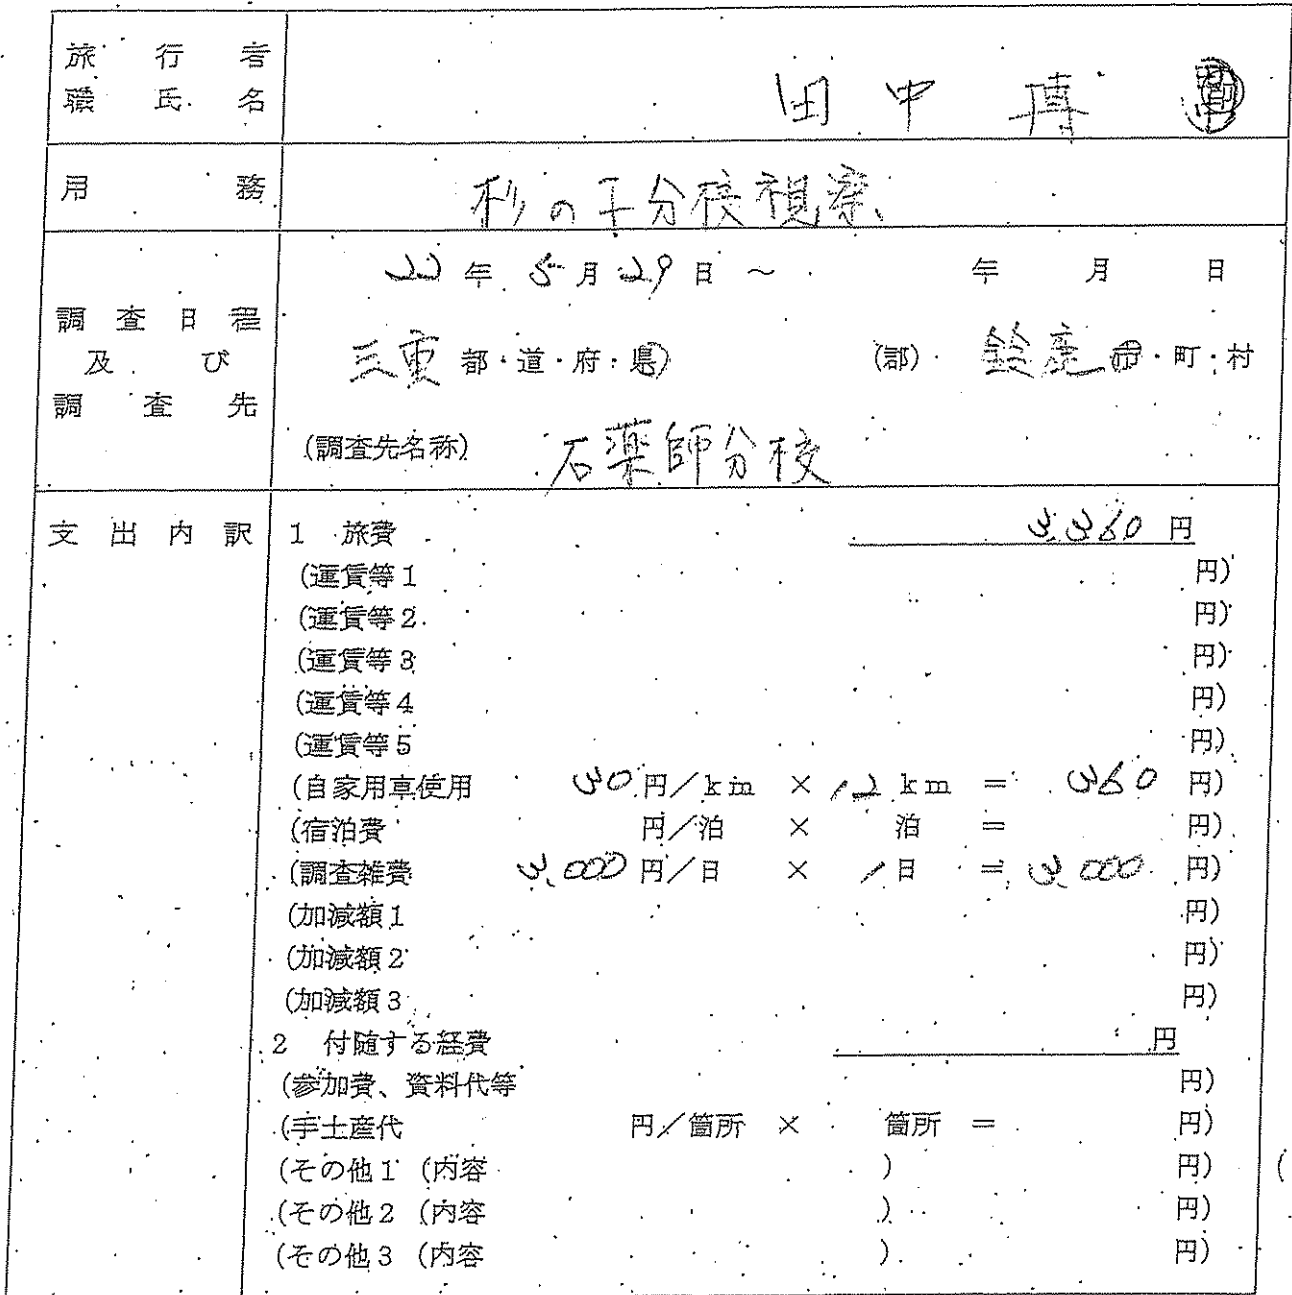 旅行者
職氏名 田中 博
用務 杉の子分校視察
22年 5月 29日 ～ 年 月 日
調査日程
及び
調査先
三重 都・道・府・県 (郡) 鈴鹿 市・町・村
(調査先名称) 石薬師分校
支出内訳 1 旅費 3,360 円
(運賃等1 円)
(運賃等2 円)
(運賃等3 円)
(運賃等4 円)
(運賃等5 円)
(自家用車使用 30 円／km × 12 km = 360 円)
(宿泊費 円／泊 × 泊 = 円)
(調査雑費 3,000 円／日 × 1 日 = 3,000 円)
(加減額1 円)
(加減額2 円)
(加減額3 円)
2 付随する経費 円
(参加費、資料代等 円)
(手土産代 円／箇所 × 箇所 = 円)
(その他1 (内容 ) 円)
(その他2 (内容 ) 円)
(その他3 (内容 ) 円)